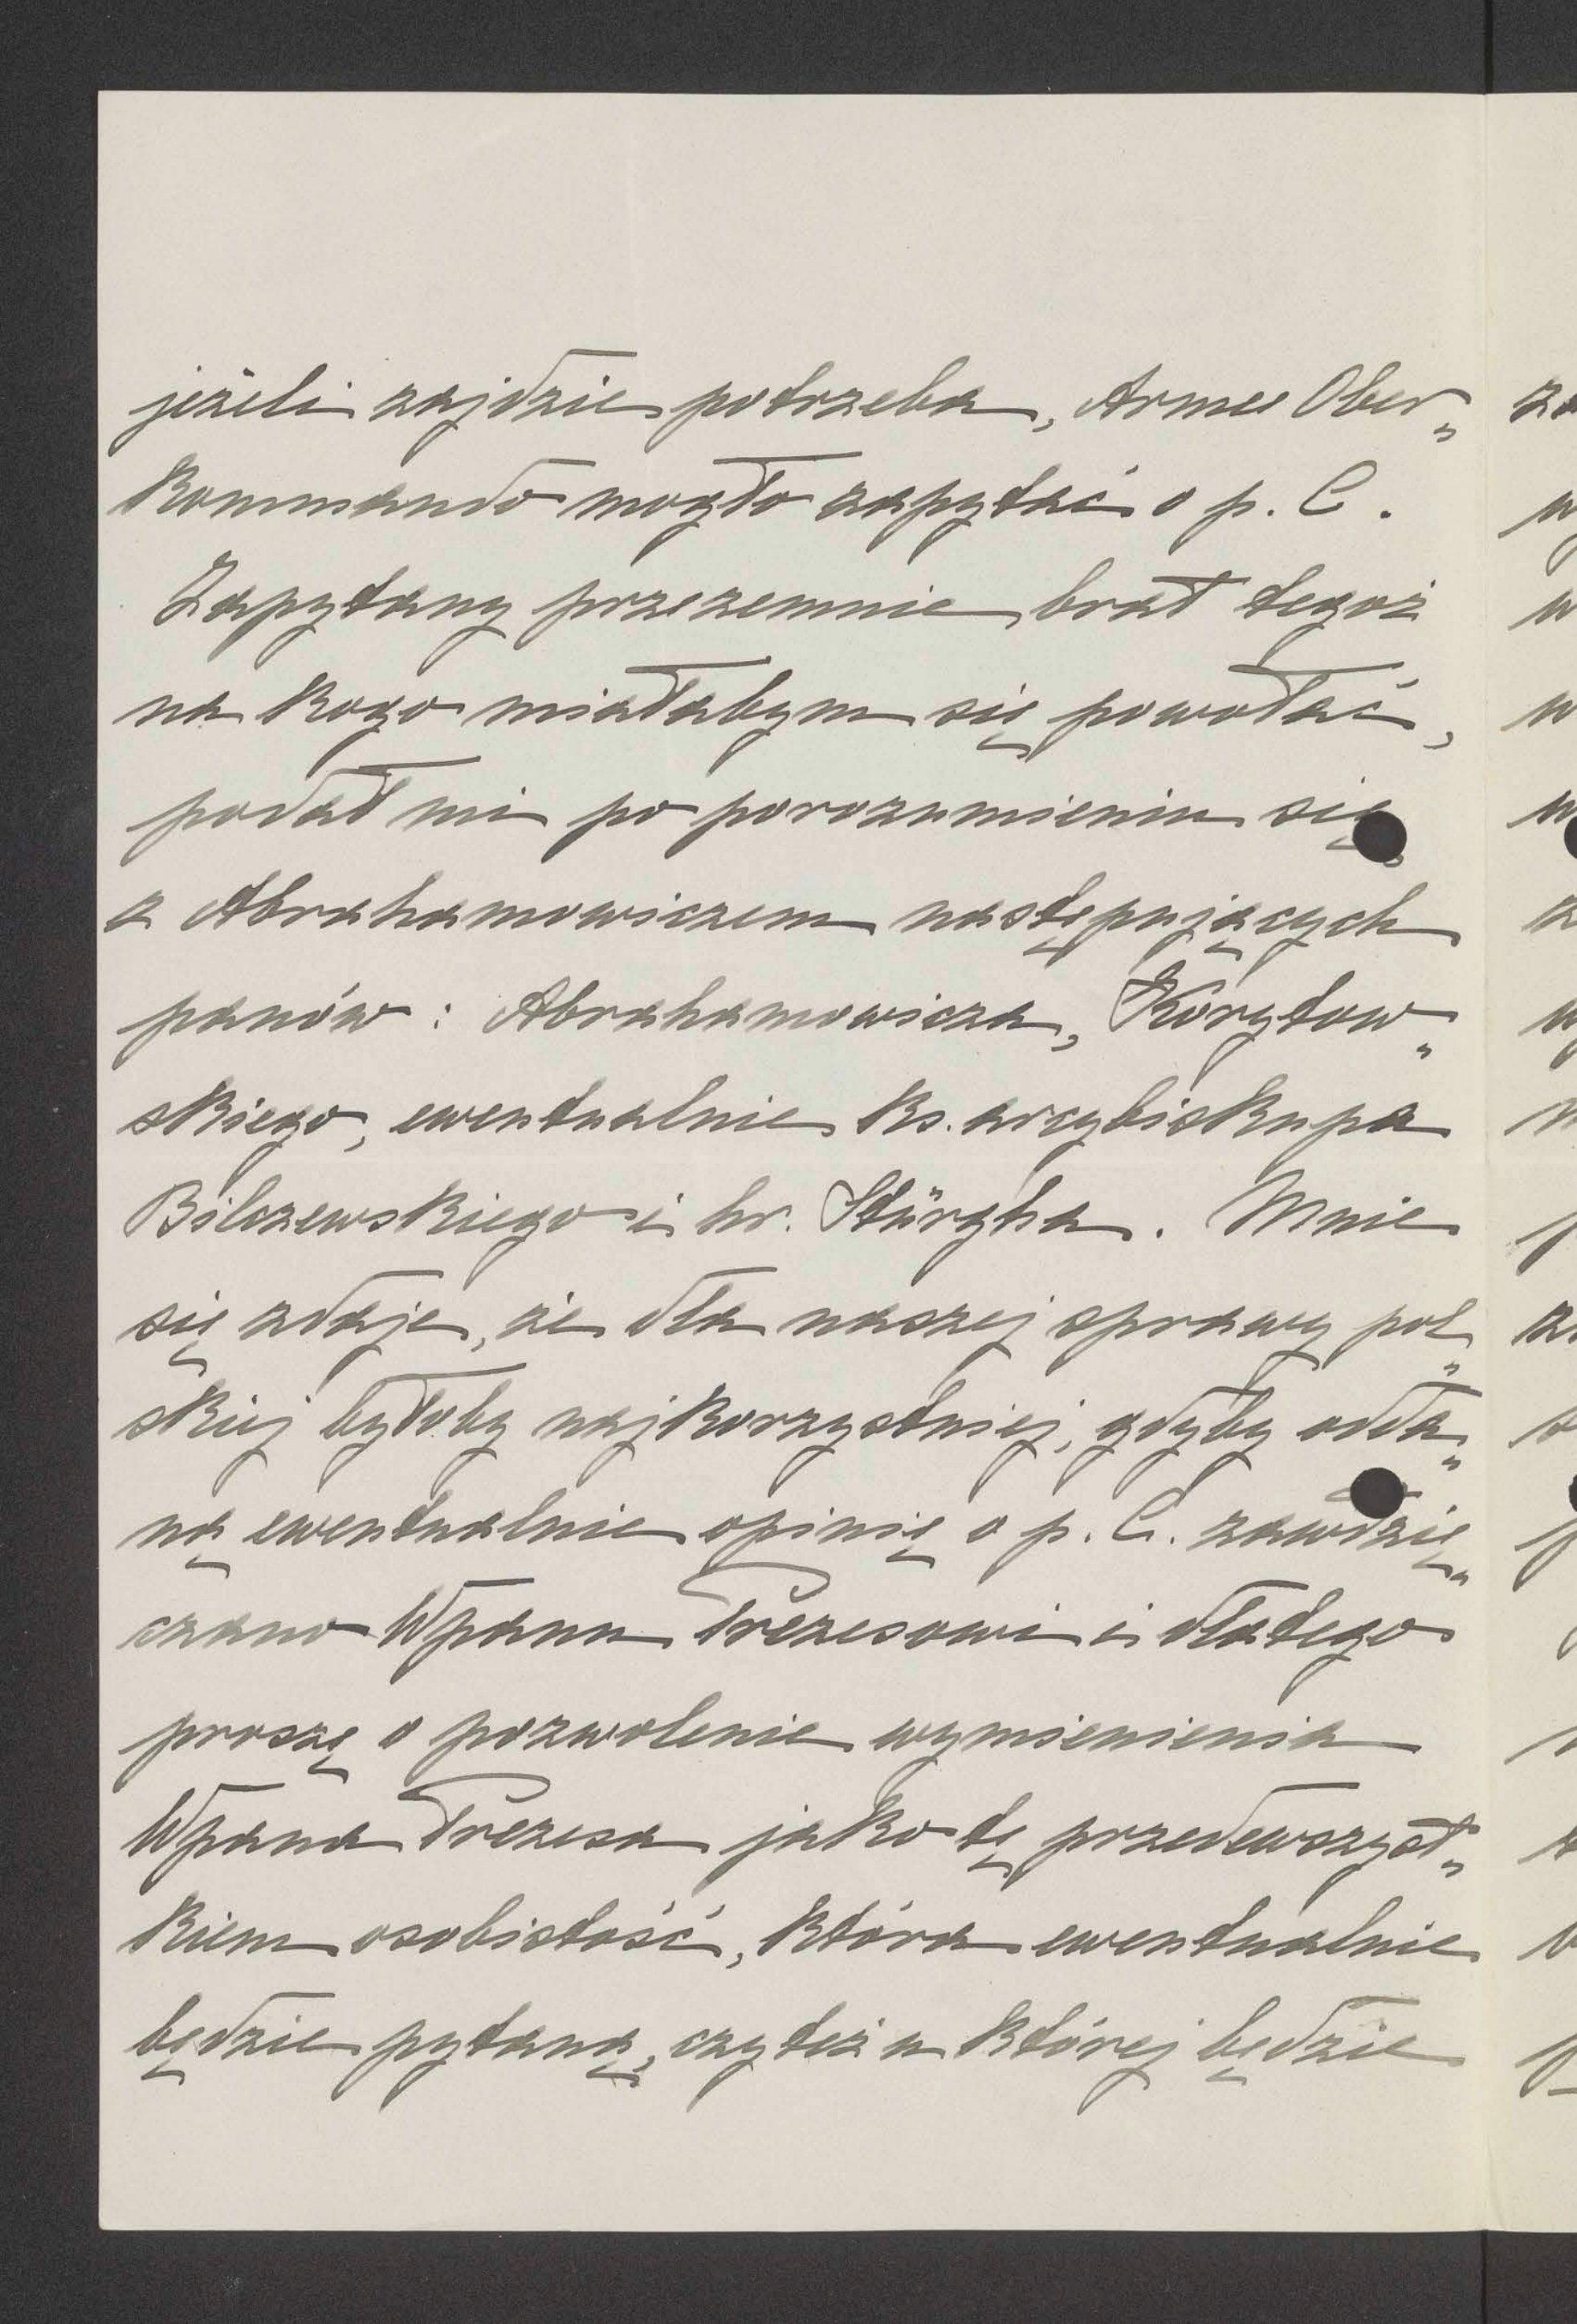 jeżeli zajdzie potrzeba, Armee Ober„
kommando mogło zapytać o p. C.
Zapytany przezemnie brat tegoż
na kogo miałabym się powołać,
podał mi po porozumieniu się
z Abrahamowiczem następujących
panów: Abrahamowicza, Korytow„
skiego, ewentualnie ks. arcybiskupa
Bilczewskiego i hr. Stürgha. Mnie
się zdaje, że dla naszej sprawy pol„
skiej byłoby najkorzystniej, gdyby odda„
ną ewentualnie opinię o p. C. zawdzię„
czano Wpanu Prezesowi i dlatego
proszę o pozwolenie wymienienia
Wpana Prezesa jako tę przedewszyst„
kiem osobistość, która ewentualnie
będzie pytaną, czy też u której będzie